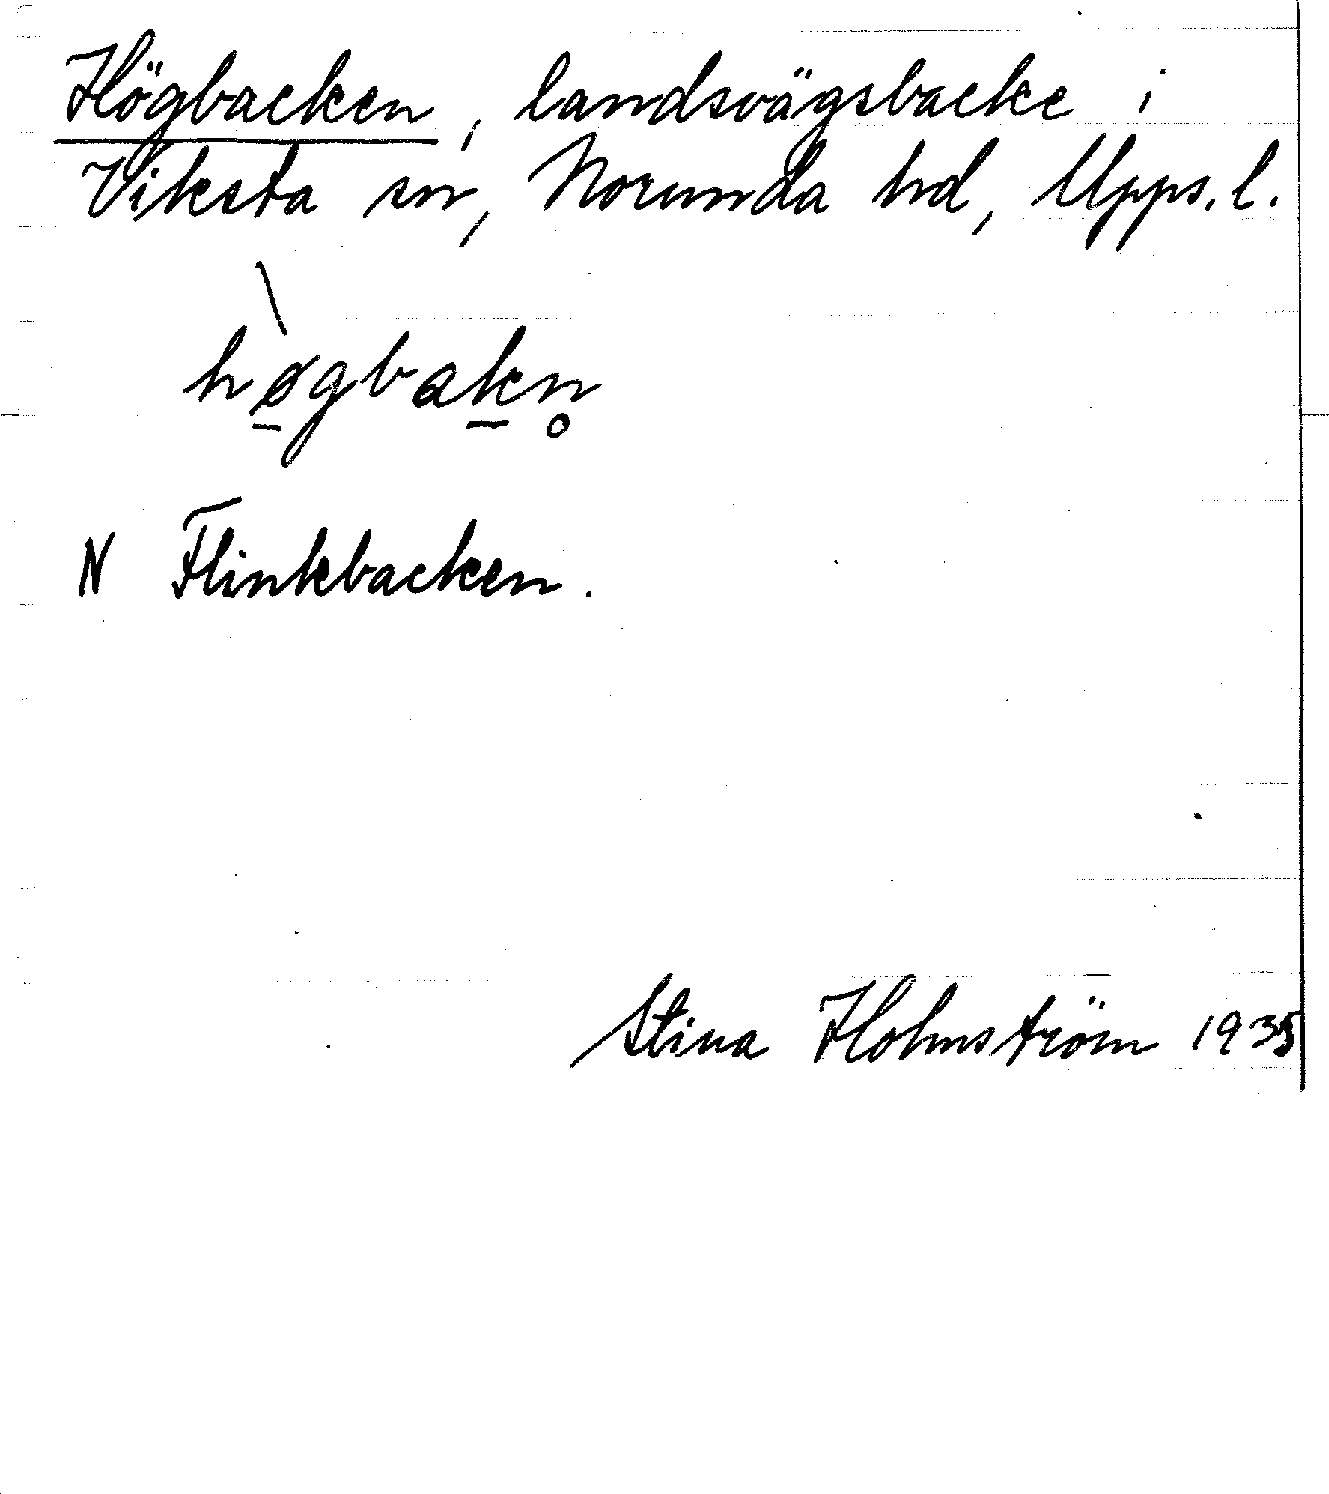 Högbacken, landsvägsbacke i
Viksta sn, Norunda hd, Upps. l.
hø̠̀gbak̠n̥
N Flinkbacken.
Stina Holmström 1935